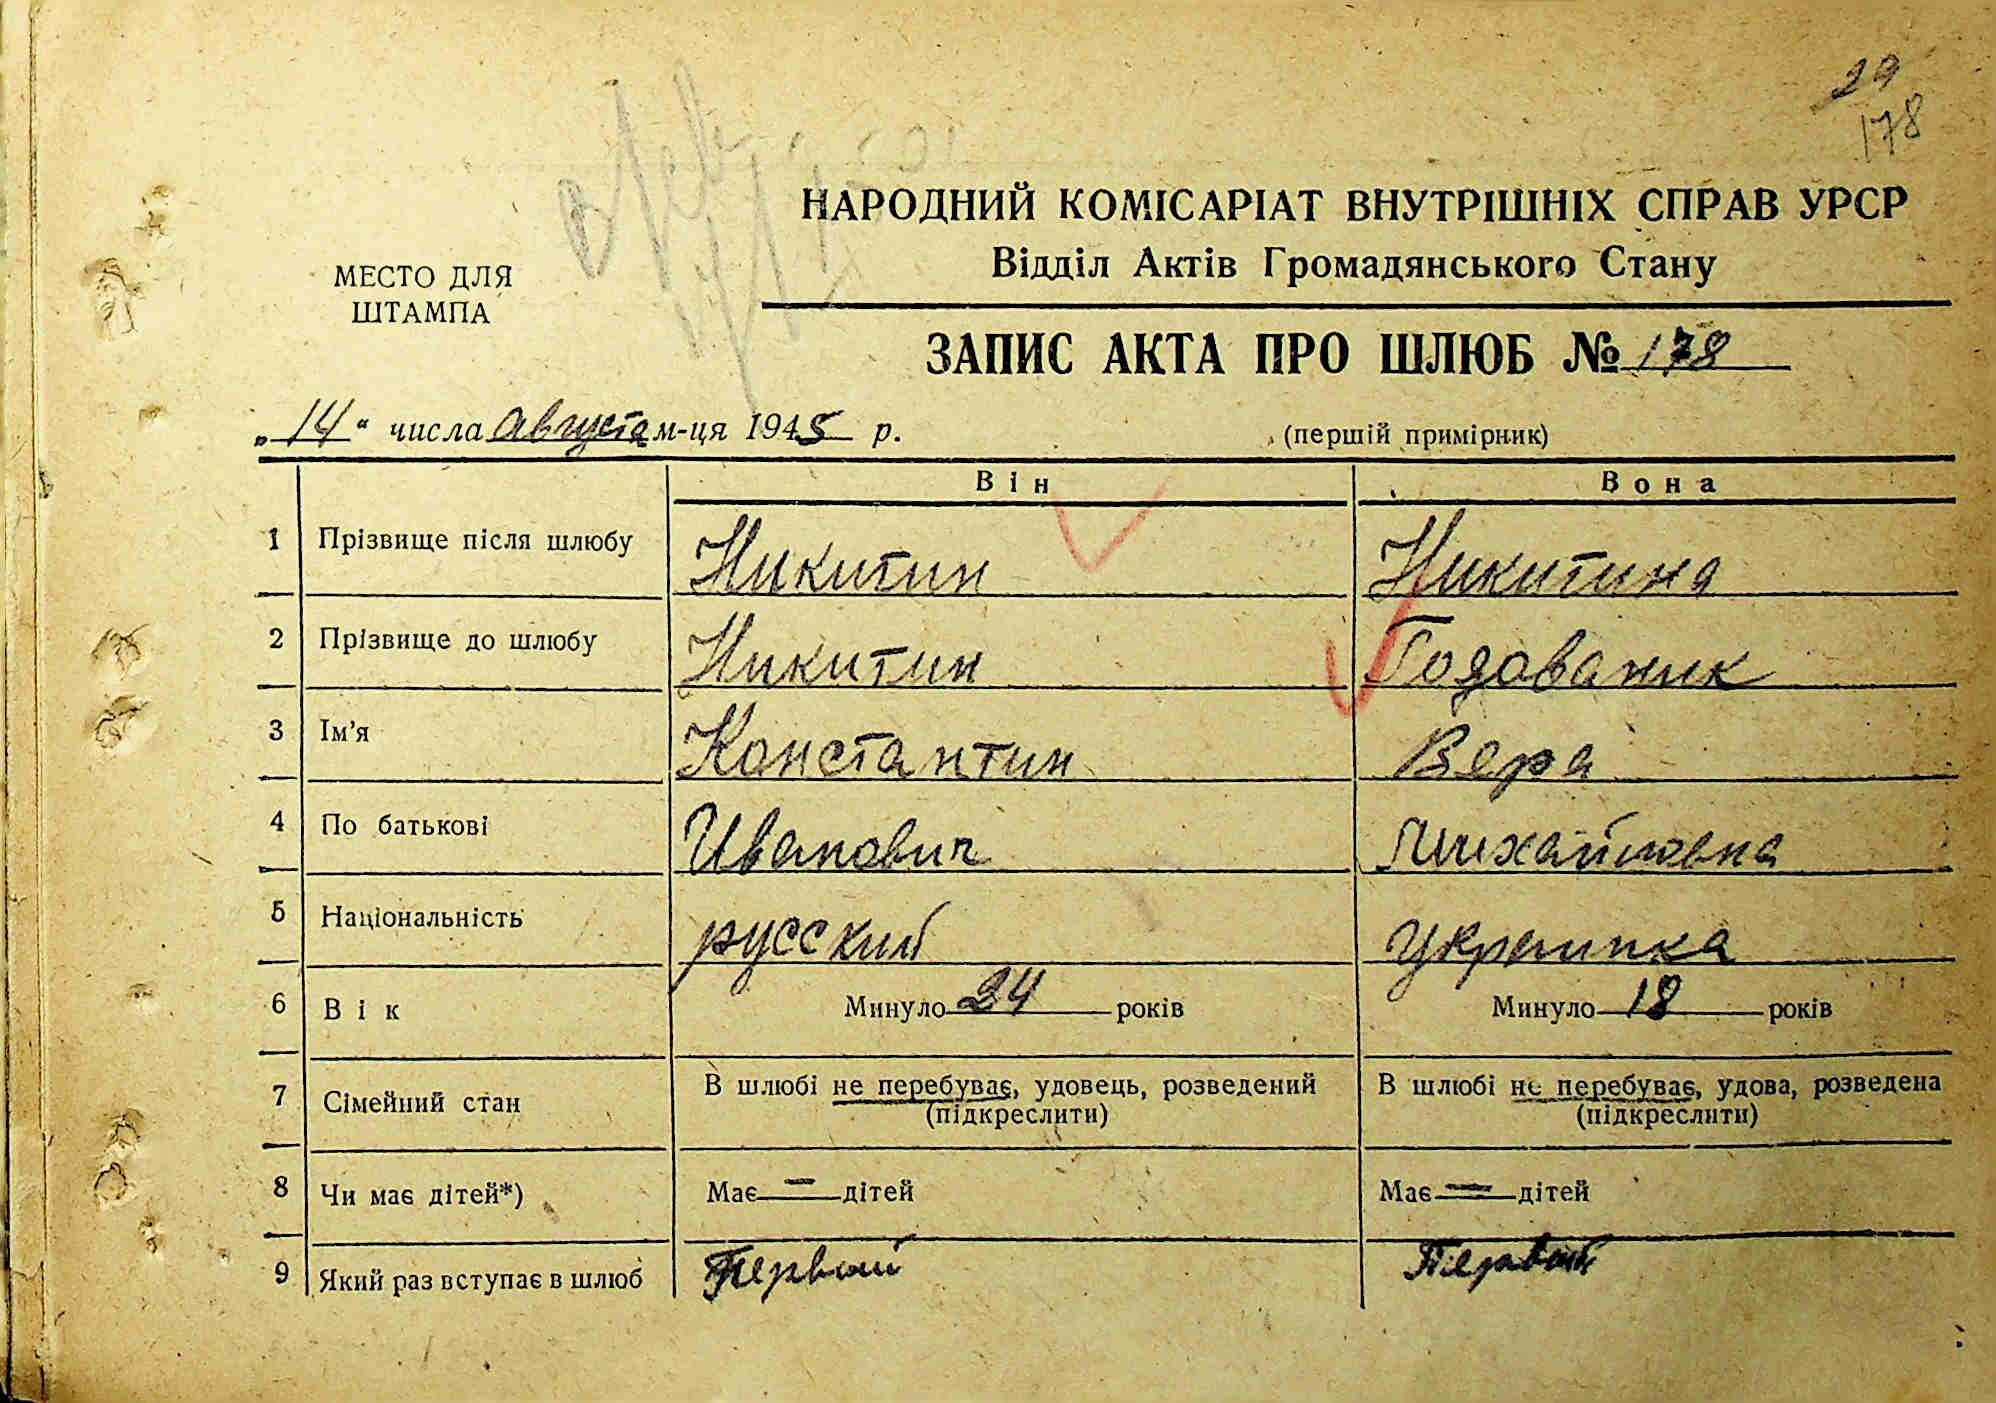 29
178
НАРОДНИЙ КОМІСАРІАТ ВНУТРІШНІХ СПРАВ УРСР
Відділ Актів Громадянського Стану
МЕСТО ДЛЯ
ШТАМПА
ЗАПИС АКТА ПРО ШЛЮБ № 178
„14“ числа августа м-ця 1945 р.
(першій примірник)
Він Вона
1 Прізвище після шлюбу Никитин Никитина
2 Прізвище до шлюбу Никитин Годованик
3 Ім'я Константин Вера
4 По батькові Иванович Михайловна
5 Національність русский украинка
6 Вік Минуло 24 років Минуло 18 років
7 Сімейний стан В шлюбі не перебуває, удовець, розведений В шлюбі не перебуває, удова, розведена
(підкреслити) (підкреслити)
8 Чи має дітей*) Має — дітей Має — дітей
9 Який раз вступає в шлюб Первый Первый